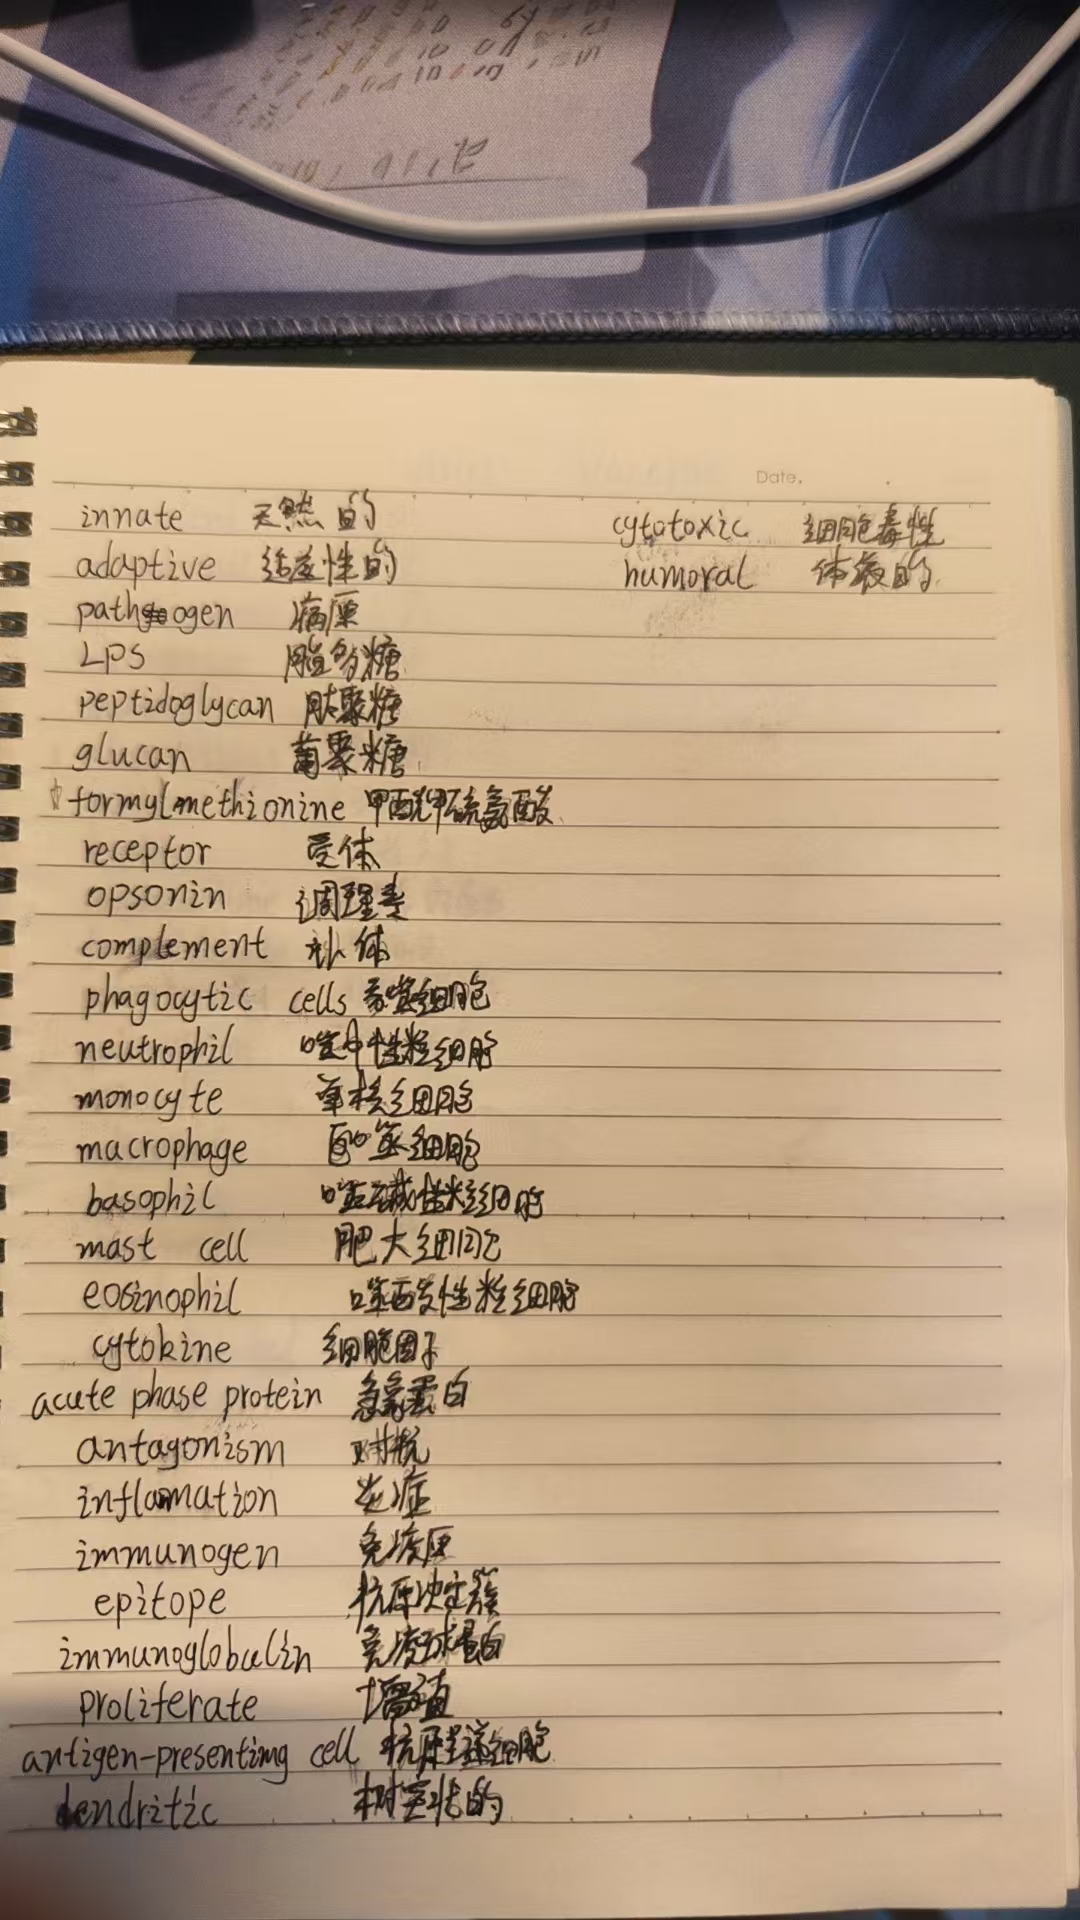 Date.
innate 天然的
adaptive 适应性的
pathogen 病原
LPS 脂多糖
peptidoglycan 肽聚糖
glucan 葡聚糖
formylmethionine 甲酰甲硫氨酸
receptor 受体
opsonin 调理素
complement 补体
phagocytic cells 吞噬细胞
neutrophil 嗜中性粒细胞
monocyte 单核细胞
macrophage 巨噬细胞
basophil 嗜碱性粒细胞
mast cell 肥大细胞
eosinophil 嗜酸性粒细胞
cytokine 细胞因子
acute phase protein 蛋白
antagonism 对抗
inflammation 炎症
immunogen 免疫原
epitope 抗原决定簇
immunoglobulin 免疫球蛋白
proliferate 增殖
antigen-presentimg cell 抗原呈递细胞
dendritic 树突状的
cytotoxic 细胞毒性
humoral 体液的